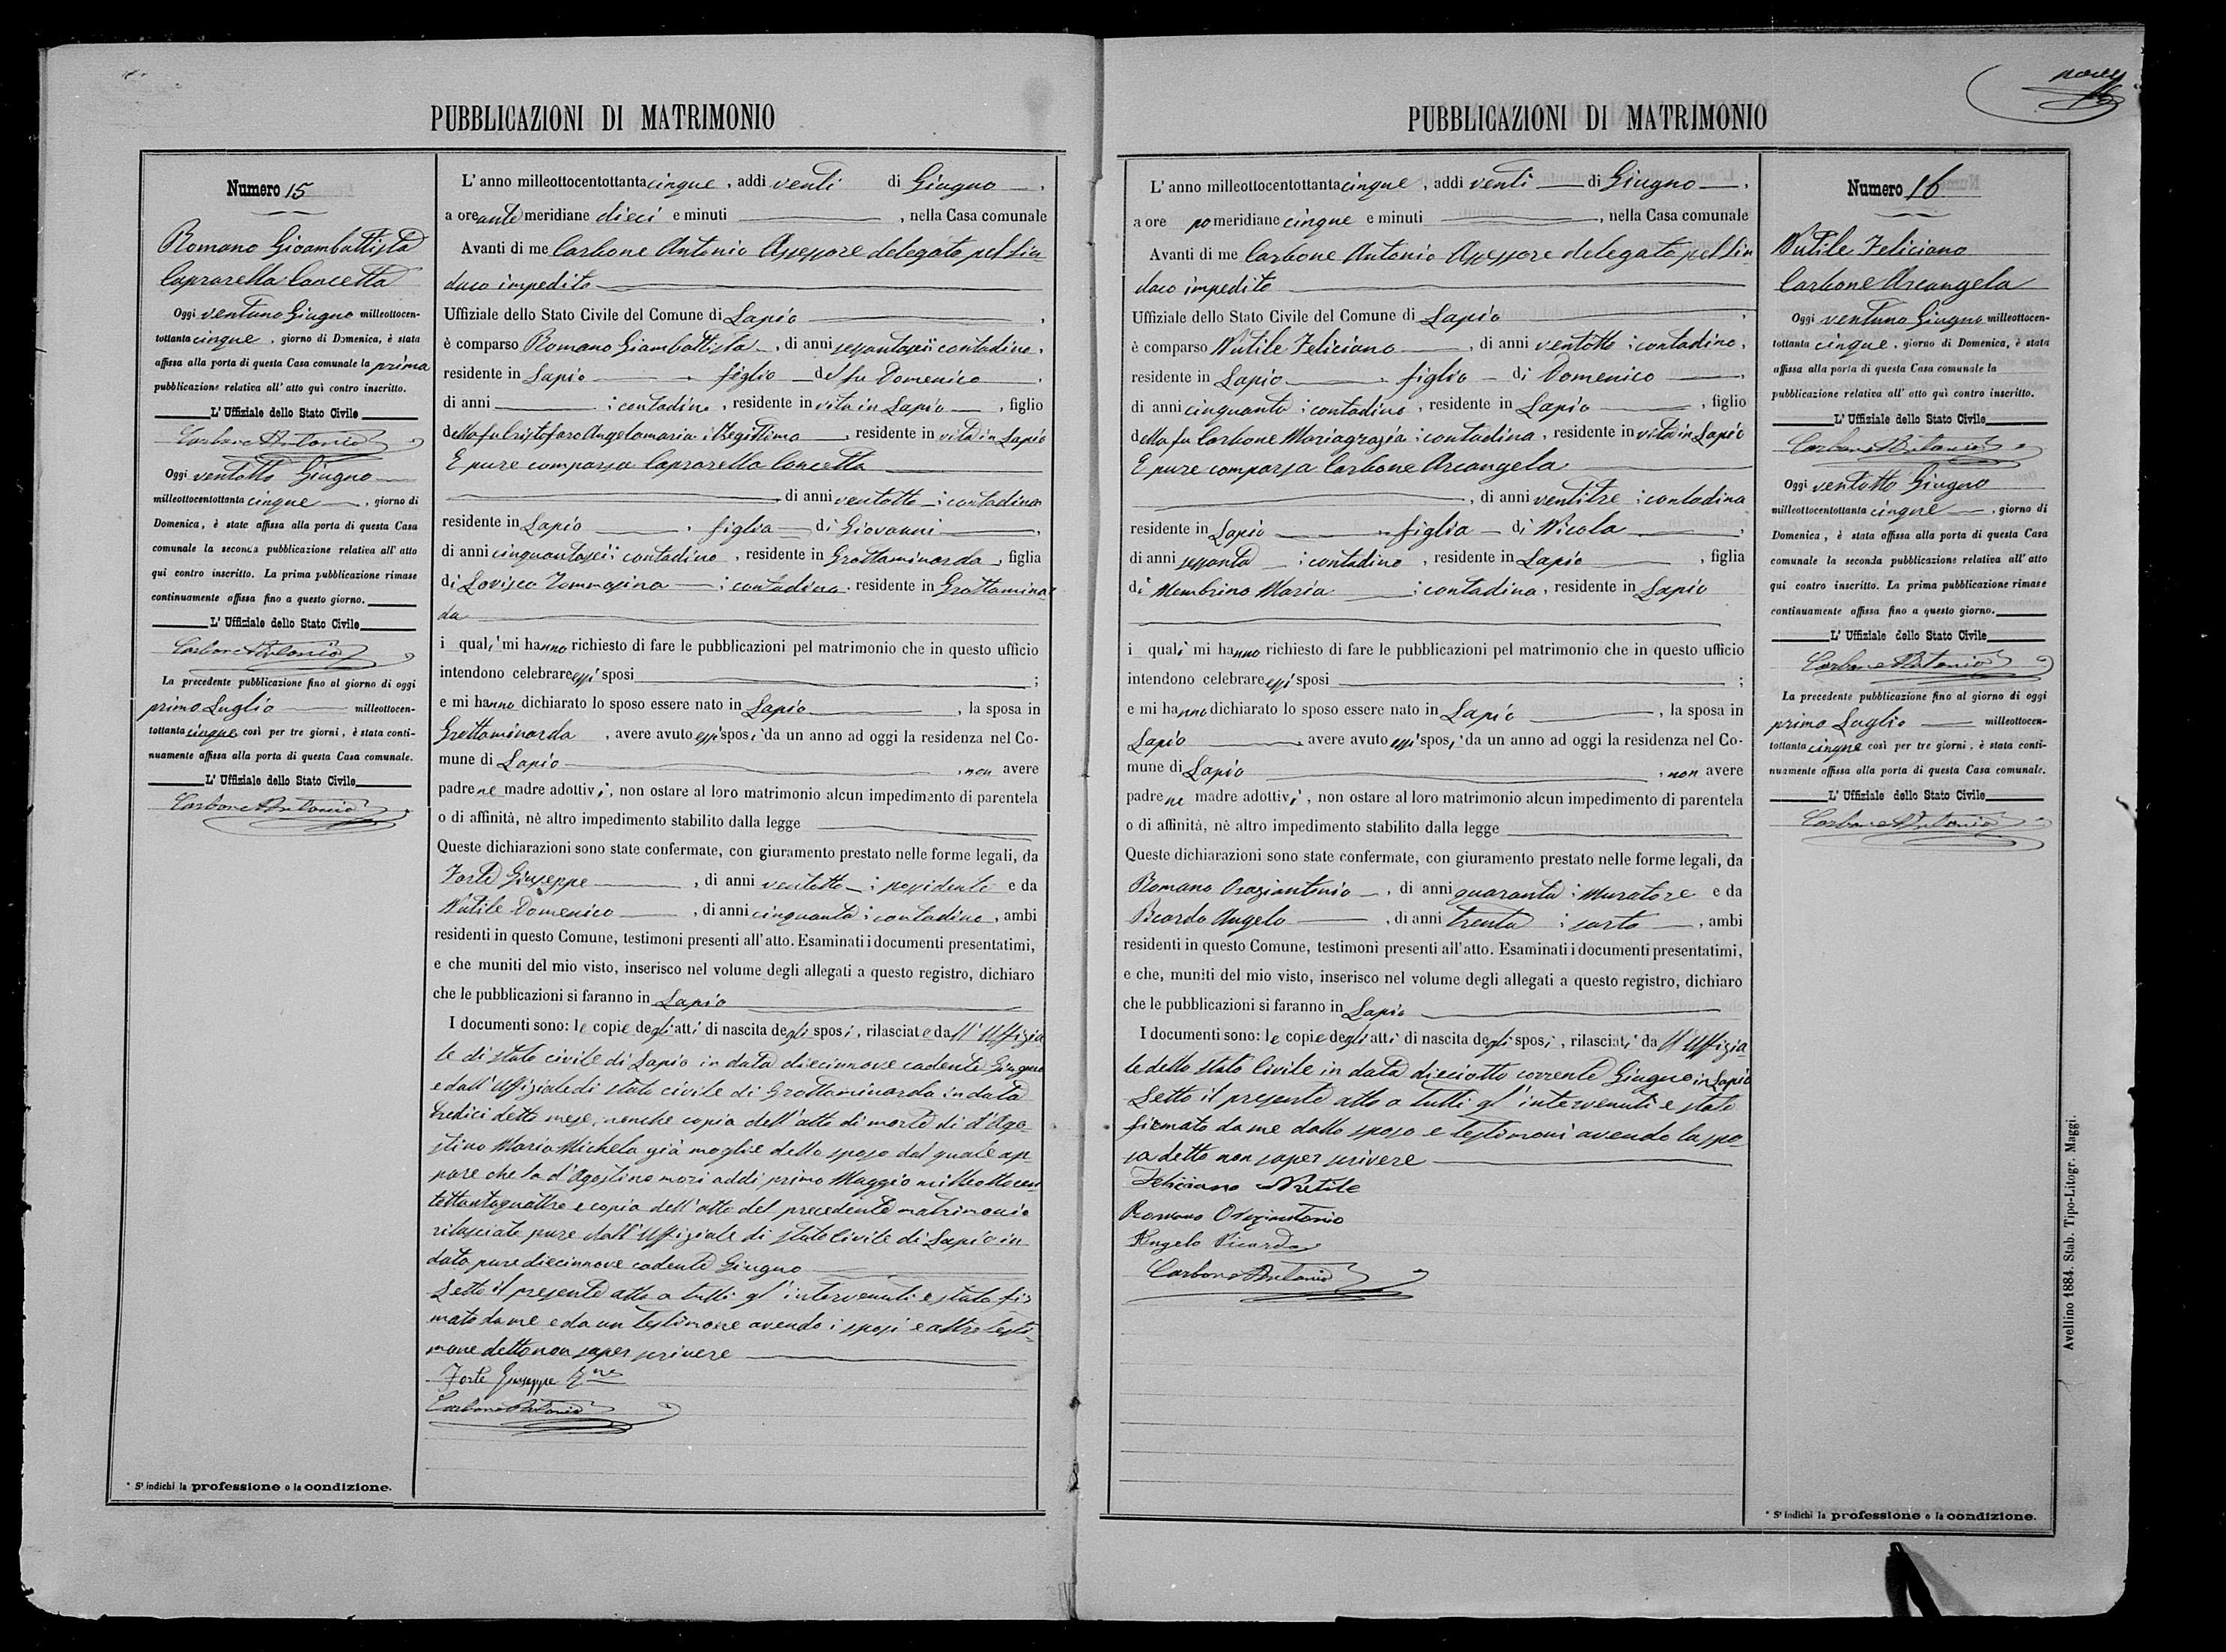 PUBBLICAZIONI DI MATRIMONIO
Numero 15
Romano Gioambattista
Caprarella Concetta
Oggi ventuno Giugno milleottocen-
tottanta cinque, giorno di Domenica, è stata
affissa alla porta di questa Casa comunale la prima
pubblicazione relativa all' atto quì contro inscritto.
L' Uffiziale dello Stato Civile
Carbone Antonio
Oggi ventotto Giugno
milleottocentottanta cinque, giorno di
Domenica, è stata affissa alla porta di questa Casa
comunale la seconda pubblicazione relativa all' atto
qui contro inscritto. La prima pubblicazione rimase
continuamente affissa fino a questo giorno.
L' Uffiziale dello Stato Civile
Carbone Antonio
La precedente pubblicazione fino al giorno di oggi
primo Luglio milleottocen-
tottanta cinque così per tre giorni, è stata conti-
nuamente affissa alla porta di questa Casa comunale.
L' Uffiziale dello Stato Civile
Carbone Antonio
* S' indichi la professione o la condizione.
L' anno milleottocentottanta cinque, addi venti di Giugno,
a ore ante meridiane dieci e minuti, nella Casa comunale
Avanti di me Carbone Antonio Assessore delegato pel Sin-
daco impedito
Uffiziale dello Stato Civile del Comune di Lapio,
è comparso Romano Giambattista, di anni sessantasei contadino,
residente in Lapio, figlio del fu Domenico,
di anni : contadino, residente in vita in Lapio, figlio
della fu Cristofaro Angelamaria : Filegittima, residente in vita in Lapio
E pure comparsa Caprarella Concetta
di anni ventotto : contadina
residente in Lapio, figlia di Giovanni,
di anni cinquantasei : contadino, residente in Grottaminarda, figlia
di Lovisco Tommasina : contadina, residente in Grottaminar
da
i quali mi hanno richiesto di fare le pubblicazioni pel matrimonio che in questo ufficio
intendono celebrare essi sposi ;
e mi hanno dichiarato lo sposo essere nato in Lapio, la sposa in
Grottaminarda, avere avuto essi sposi da un anno ad oggi la residenza nel Co-
mune di Lapio, non avere
padre ne madre adottivi, non ostare al loro matrimonio alcun impedimento di parentela
o di affinità, nè altro impedimento stabilito dalla legge
Queste dichiarazioni sono state confermate, con giuramento prestato nelle forme legali, da
Forte Giuseppe, di anni ventotto : possidente e da
Nutile Domenico, di anni cinquanta : contadino, ambi
residenti in questo Comune, testimoni presenti all' atto. Esaminati i documenti presentatimi,
e che muniti del mio visto, inserisco nel volume degli allegati a questo registro, dichiaro
che le pubblicazioni si faranno in Lapio
I documenti sono: le copie degli atti di nascita degli sposi, rilasciate dall' Uffizia
le di stato civile di Lapio in data diecinnove cadente Giugno
e dall' Uffiziale di stato civile di Grottaminarda in data
tredici detto mese, nonche copia dell' atto di morte di d' Ago-
stino Maria Michela già moglie dello sposo dal quale ap-
pare che la d' Agostino morì addì primo Maggio milleottocen
tottantaquattro e copia dell' atto del precedente matrimonio
rilasciate pure dall' Uffiziale di stato Civile di Lapio in
data pure diecinnove cadente Giugno
Letto il presente atto a tutti gl' intervenuti è stato fir
mato da me e da un testimone avendo i sposi e altro testi-
mone detto non saper scrivere
Forte Giuseppe
Carbone Antonio
PUBBLICAZIONI DI MATRIMONIO
L' anno milleottocentottanta cinque, addi venti di Giugno,
a ore po meridiane cinque e minuti, nella Casa comunale
Avanti di me Carbone Antonio Assessore delegato pel Sin
daco impedito
Uffiziale dello Stato Civile del Comune di Lapio,
è comparso Nutile Feliciano, di anni ventotto : contadino,
residente in Lapio, figlio di Domenico,
di anni cinquanta : contadino, residente in Lapio, figlio
della fu Carbone Mariagrazia : contadina, residente in vita in Lapio
E pure comparsa Carbone Arcangela
, di anni ventitre : contadina
residente in Lapio, figlia di Nicola,
di anni sessanta : contadino, residente in Lapio, figlia
di Membrino Maria : contadina, residente in Lapio
i quali mi hanno richiesto di fare le pubblicazioni pel matrimonio che in questo ufficio
intendono celebrare essi sposi ;
e mi hanno dichiarato lo sposo essere nato in Lapio, la sposa in
Lapio, avere avuto essi sposi da un anno ad oggi la residenza nel Co-
mune di Lapio, non avere
padre ne madre adottivi, non ostare al loro matrimonio alcun impedimento di parentela
o di affinità, nè altro impedimento stabilito dalla legge
Queste dichiarazioni sono state confermate, con giuramento prestato nelle forme legali, da
Romano Oraziantonio, di anni quaranta : muratore e da
Picardo Angelo, di anni trenta : sarto, ambi
residenti in questo Comune, testimoni presenti all' atto. Esaminati i documenti presentatimi,
e che, muniti del mio visto, inserisco nel volume degli allegati a questo registro, dichiaro
che le pubblicazioni si faranno in Lapio
I documenti sono: le copie degli atti di nascita degli sposi, rilasciati dall' Uffizia-
le dello stato Civile in data dieciotto corrente Giugno in Lapio
Letto il presente atto a tutti gl' intervenuti è stato
firmato da me dallo sposo e testimoni avendo la spo
sa detto non saper scrivere
Feliciano Nutile
Romano Oraziantonio
Angelo Picardo
Carbone Antonio
Numero 16
Nutile Feliciano
Carbone Arcangela
Oggi ventuno Giugno milleottocen-
tottanta cinque, giorno di Domenica, è stata
affissa alla porta di questa Casa comunale la
pubblicazione relativa all' atto quì contro inscritto.
L' Uffiziale dello Stato Civile
Carbone Antonio
Oggi ventotto Giugno
milleottocentottanta cinque, giorno di
Domenica, è stata affissa alla porta di questa Casa
comunale la seconda pubblicazione relativa all' atto
qui contro inscritto. La prima pubblicazione rimase
continuamente affissa fino a questo giorno.
L' Uffiziale dello Stato Civile
Carbone Antonio
La precedente pubblicazione fino al giorno di oggi
primo Luglio milleottocen-
tottanta cinque così per tre giorni, è stata conti-
nuamente affissa alla porta di questa Casa comunale.
L' Uffiziale dello Stato Civile
Carbone Antonio
* S' indichi la professione o la condizione.
Avellino 1884. Stab. Tipo-Litogr. Maggi.